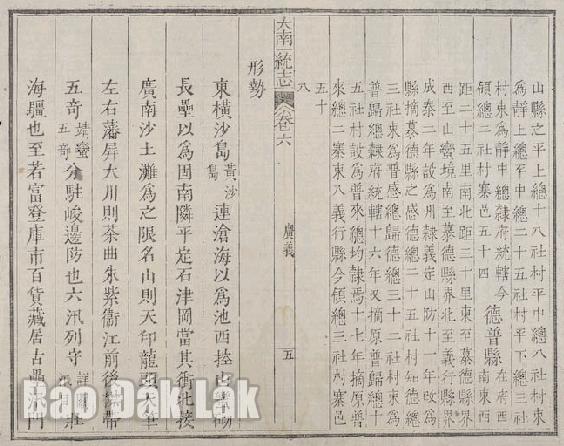 山縣之平上總十八社村平中總八社村東
為靜上總平中總二十五社村平下總三社
村東為靜中總隸府統轄今
領總二社村寨邑五十四 德普縣 在府西南東西
距二十五里南北距二十里東至慕德縣界
西至山蠻境南至慕德縣界北至義行縣界
成泰二年設為州隸義定山防十一年改為
縣摘慕德縣之感德總二十五社村歸德總
三社東為晉感總歸德總三十二社村東為
普歸總隸府統轄十六年又摘原普歸總十
五社村設為普來總均隸焉十七年摘原普
來總二寨東入義行縣今領總三社村寨邑
五十
八
大南一統志 卷六 廣義 五
形勢
東橫沙島黃沙島連滄海以為池西控山蠻砌
長壘以為固南鄰平定石津岡當其衝北接
廣南沙土灘為之限名山則天印龍頭
左右藩屏大川則茶曲朱紫衛江前後襟帶
五奇靖蠻五奇分駐峻邊防也六汛列守莊
海疆也至若富登庫市百貨藏居古壘門
Bao Dak Lak